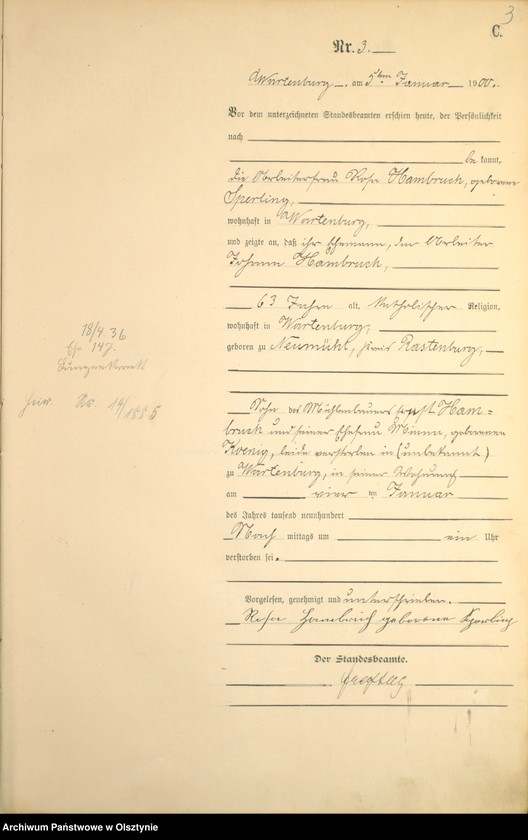 3
C.
Nr. 3.
Wartenburg am 5ten Januar 1900.
Vor dem unterzeichneten Standesbeamten erschien heute, der Persönlichkeit
nach
be kannt,
die Arbeiterfrau Rosa Hambruch, geborene
Sperling,
wohnhaft in Wartenburg,
und zeigte an, daß ihr Ehemann, der Arbeiter
Johann Hambruch,
63 Jahre alt, katholischer Religion,
wohnhaft in Wartenburg,
geboren zu Neumühl, Kreis Rastenburg,
18/4 36
147
Heir. Nr. 14/1885
Sohn des Mühlenbauers Ernst Ham=
bruch und seiner Ehefrau Minna, geborenen
Koenig, beide verstorben in (unbekannt)
zu Wartenburg, in seiner Wohnung
am vier ten Januar
des Jahres tausend neunhundert
Nach mittags um ein Uhr
verstorben sei.
Vorgelesen, genehmigt und unterschrieben.
Rosa Hambruch geborene Sperling
Der Standesbeamte.
Archiwum Państwowe w Olsztynie